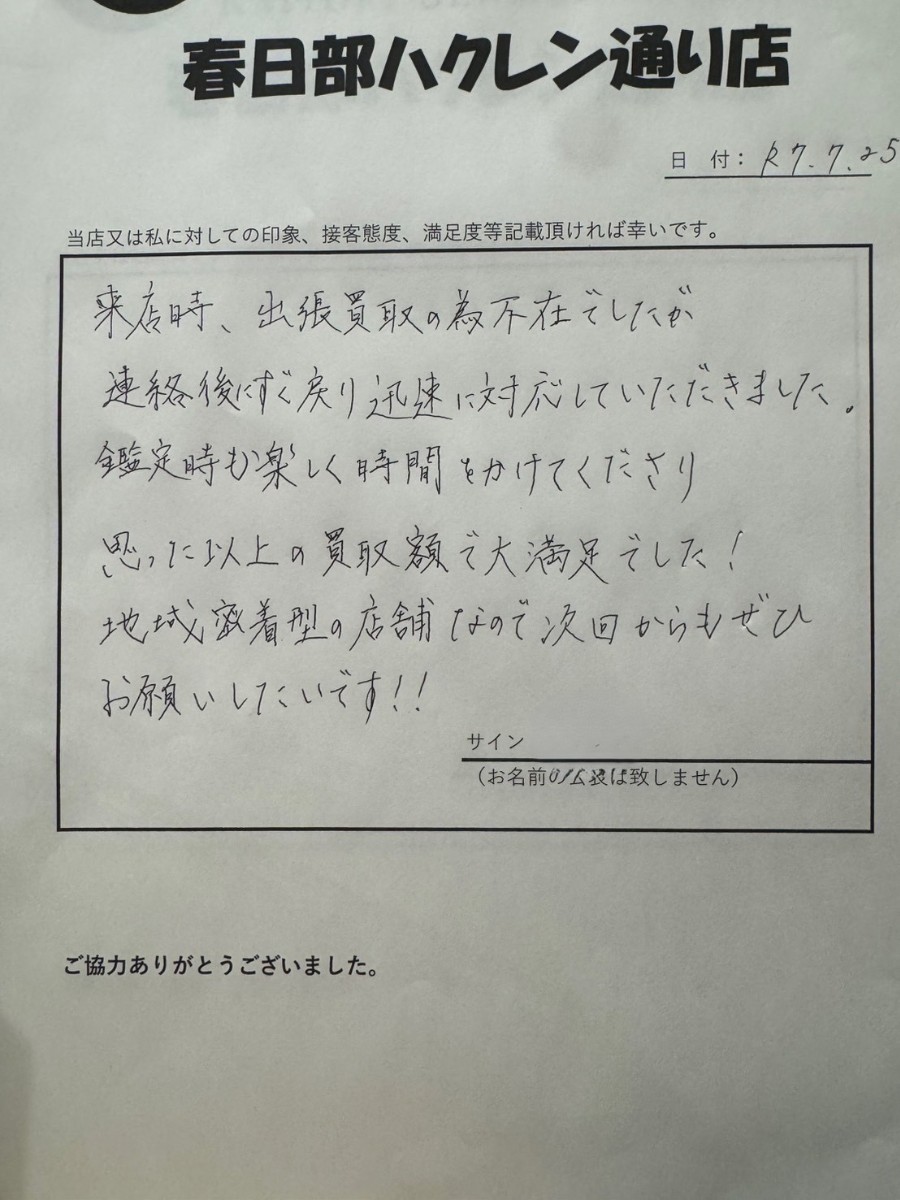 春日部ハクレン通り店
日 付： R7.7.25
当店又は私に対しての印象、接客態度、満足度等記載頂ければ幸いです。
来店時、出張買取の為不在でしたが
連絡後にすぐ戻り迅速に対応していただきました。
鑑定時も楽しく時間をかけてくださり
思った以上の買取額で大満足でした！
地域密着型の店舗なので次回からもぜひ
お願いしたいです!!
サイン
（お名前の公表は致しません）
ご協力ありがとうございました。